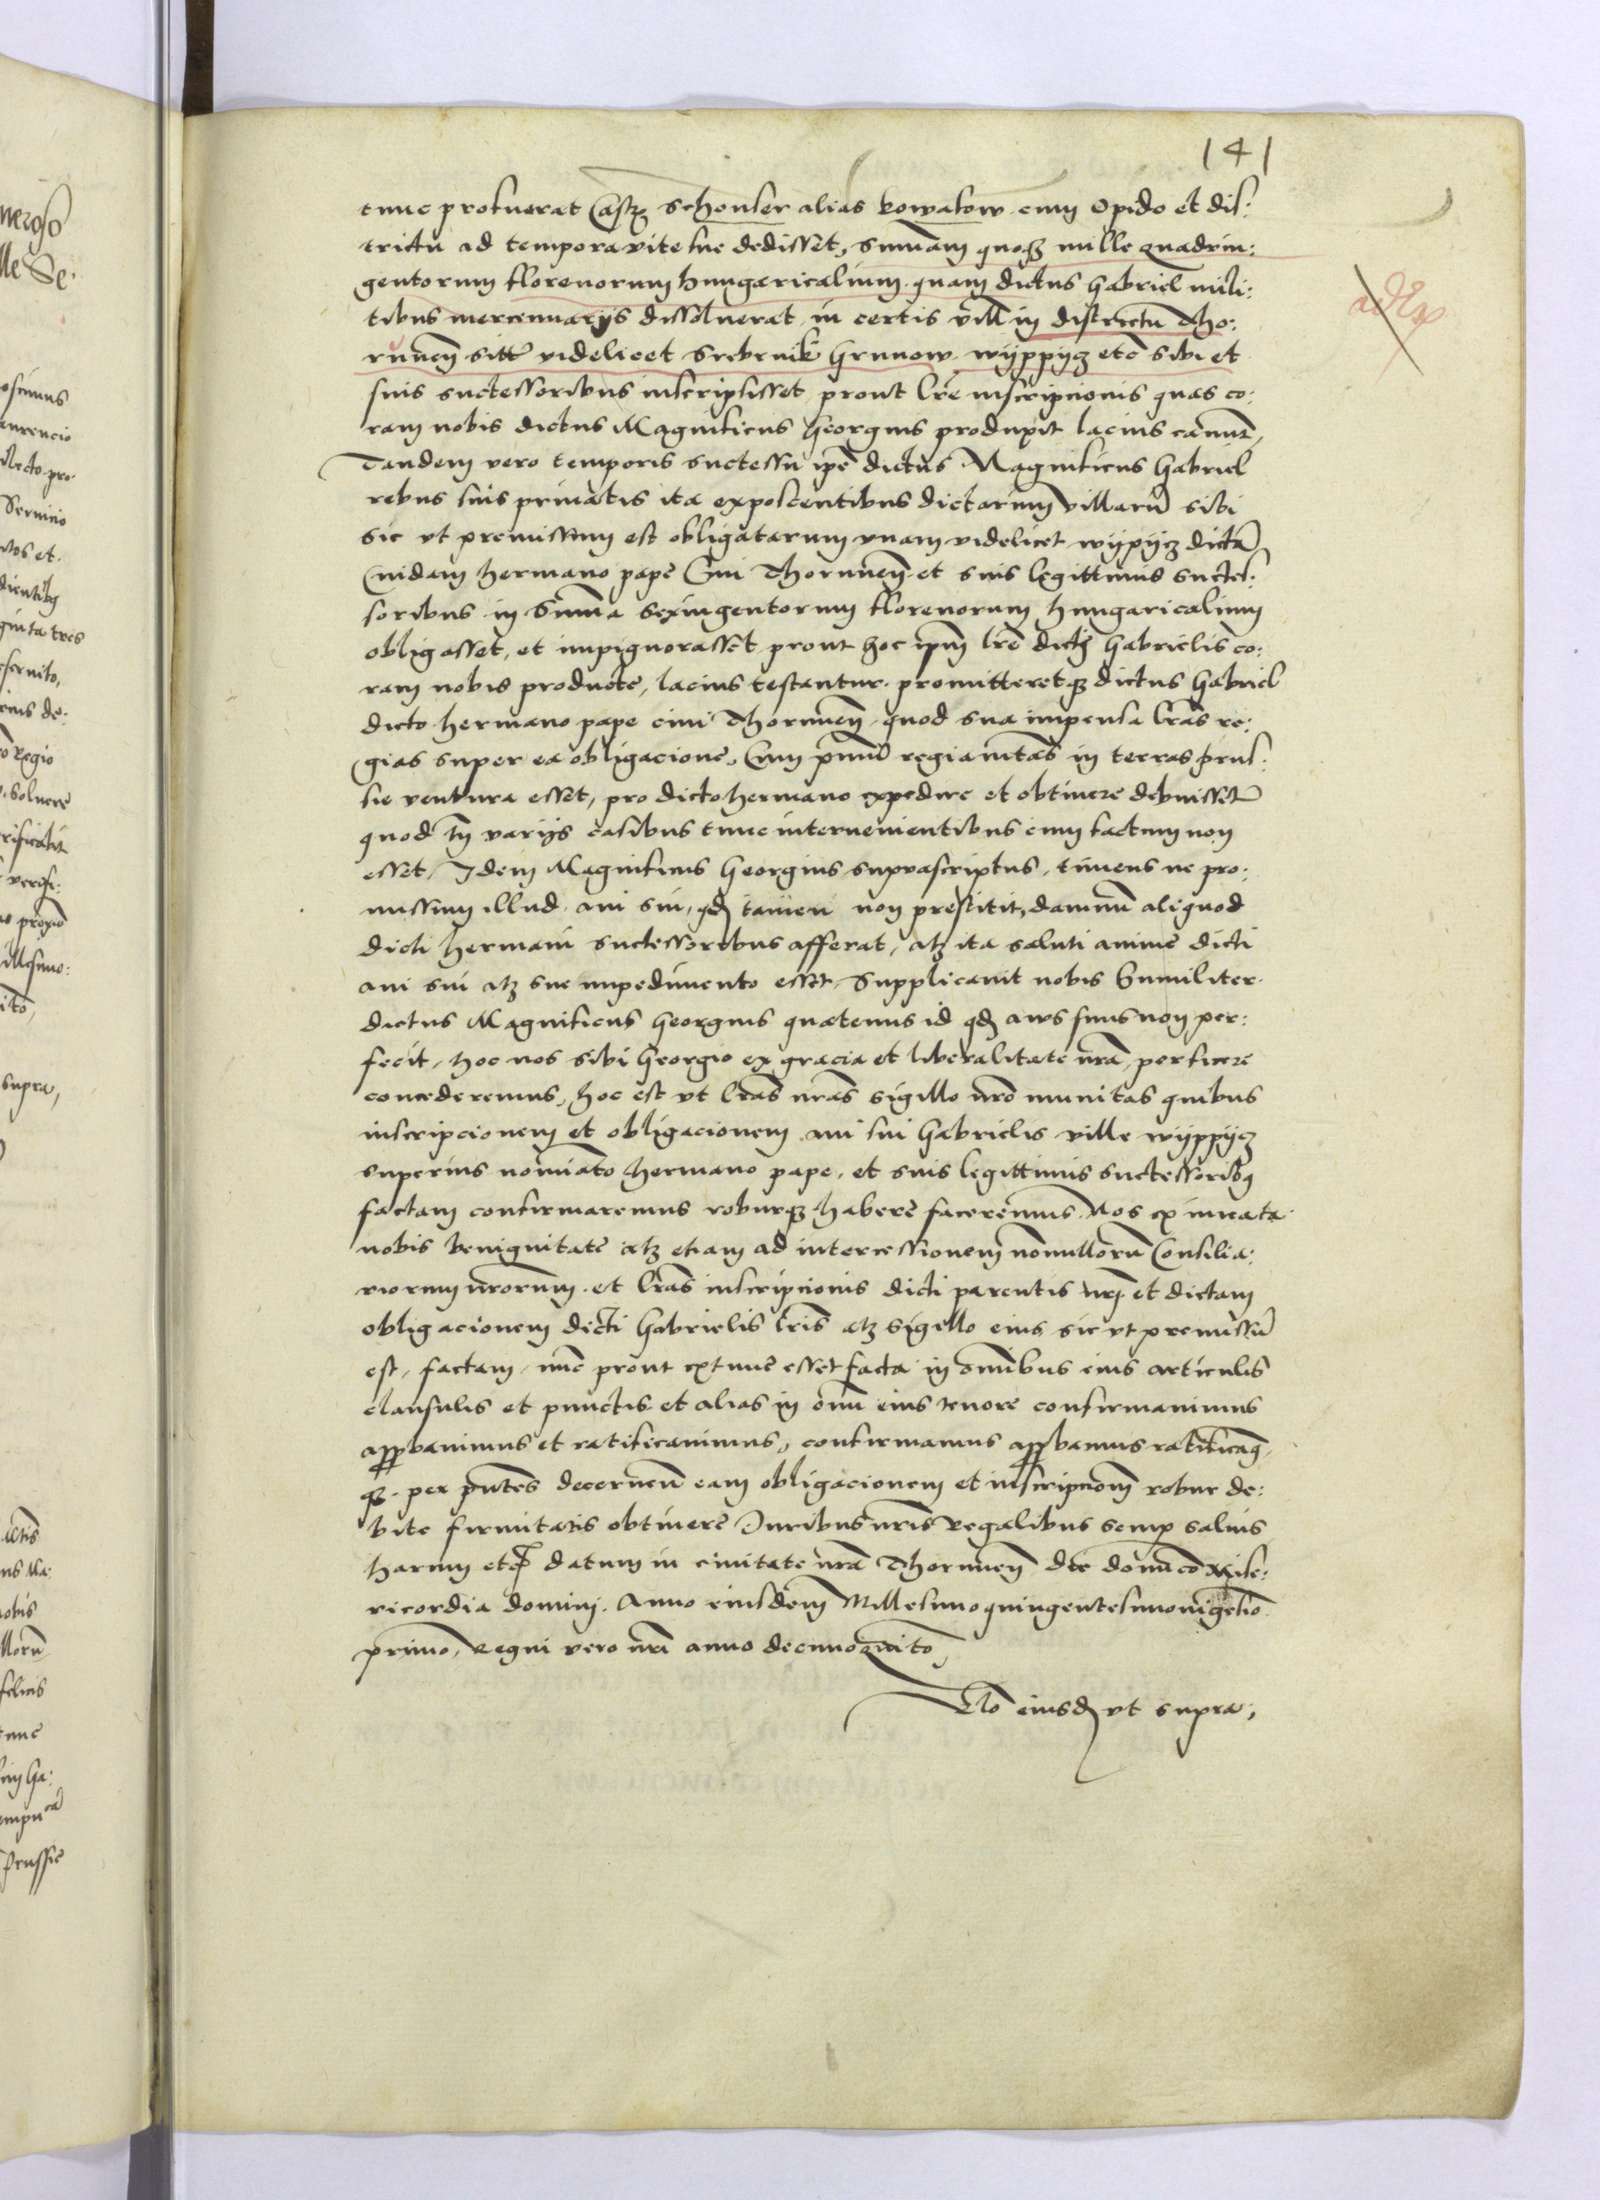 141
tunc profuerat Castrū Schonser alias kowalow cum Opido et dis:
trictu ad tempora vite sue dedisset, sum̄am quoqȝ mille quadrin:
gentorum florenorum hungaricalium. quam dictus Gabriel mili:
tibus mercennarijs dissoluerat in certis vill in districtu Tho:
runen̄ sitt̄ videlicet Srebrnik Grunow wijppijcz etc̄ sibi et
suis successoribus inscripsisset prout lr̄e inscripcionis quas co:
ram nobis dictus Magnificus Georgius produxit lacius canunt,
Tandem vero temporis successu ip̄e dictus Magnificus Gabriel
rebus suis priuatis ita exposcentibus dictarum villarū sibi
sic vt premissum est obligatarum vnam videlicet wijpijcz dictā
Cuidam hermano pape Ciui Thorunen̄ et suis legittimis succes:
soribus in Sum̄a sexingentorum florenorum hungaricalium
obligasset, et impignorasset prout hoc ip̄m lr̄e dicti Gabrielis co:
ram nobis producte, lacius testantur. promitteretqȝ dictus Gabriel
dicto hermano pape ciui Thorunen̄ quod sua impensa lr̄as re:
gias super ea obligacione, Cum primū regia mtās in terras prus:
sie ventura esset, pro dicto hermano expedire et obtinere debuisset
quod tn̄ varijs casibus tunc interuenientibus cum factum non
esset, Idem Magnificus Georgius suprascriptus, timens ne pro:
missum illud aui sui, qđ tamen non prestitit, damnū aliquod
dicti hermani successoribus afferat, atqȝ ita saluti anime dicti
aui sui atqȝ sue impedimento esset, Supplicauit nobis humiliter
dictus Magnificus Georgius quatenus id qđ aws suus non per:
fecit, hoc nos sibi Georgio ex gracia et liberalitate nr̄a, perficere
concederemus, hoc est vt lr̄as nr̄as sigillo nr̄o munitas quibus
inscripcionem et obligacionem aui sui Gabrielis ville wijppijcz
superius nominato hermano pape, et suis legittimis successoribȝ
factam confirmaremus roburqȝ habere faceremus. Nos ex innata
nobis benignitate atqȝ etiam ad intercessionem nonnullorū Consilia:
riorum nr̄orum et lr̄as inscripcionis dicti parentis nr̄i et dictam
obligacionem dicti Gabrielis lr̄is atqȝ sigillo eius sic vt premissū
est, factam, nunc prout extunc esset facta in om̄ibus eius articulis
clausulis et punctis et alias in om̄i eius tenore confirmauimus
approbauimus et ratificauimus, confirmamus approbamus ratificamꝰ
qȝ per pn̄tes decernen̄ eam obligacionem et inscripcionem robur de:
bite firmitatis obtinere Iuribus nr̄is regalibus semp saluis
harum etc̄ datum in ciuitate nr̄a Thorunen̄ die dominico Mise:
ricordia domini. Anno eiusdem Millesimo quingentesimo vigesimo
primo, Regni vero nr̄i anno decimoquinto,
Rlo eiusdē vt supra,